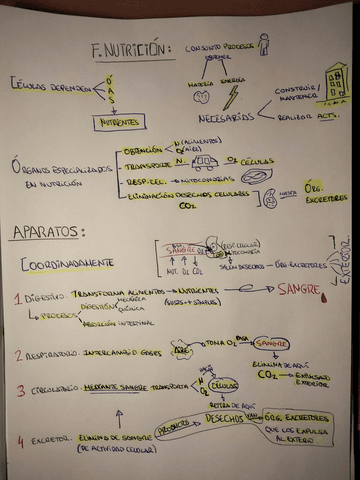 F. NUTRICIÓN:
CONJUNTO PROCESOS
OBTENER
MATERIA ENERGÍA
CÉLULAS DEPENDEN
D
Í
A
S
NUTRIENTES
NECESARIAS
CONSTRUIR/
MANTENER
REALIZAR ACTS.
ÓRGANOS ESPECIALIZADOS
EN NUTRICIÓN
OBTENCIÓN N (ALIMENTOS)
O2 (AIRE)
TRANSPORTE N. O2 CÉLULAS
RESP. CEL. → MITOCONDRIAS
ELIMINACIÓN DESECHOS CELULARES
CO2
HASTA
ÓRG.
EXCRETORES
APARATOS:
COORDINADAMENTE
SANGRE
RESP. CELULAR
MITOCONDRIA
NUT. DE CO2
SALEN DESECHOS → ÓRG. EXCRETORES
EXTERIOR
1 DIGESTIVO: TRANSFORMA ALIMENTOS → NUTRIENTES → SANGRE
PROCESOS
DIGESTIÓN MECÁNICA
QUÍMICA
(SUSTS + SIMPLES)
ABSORCIÓN INTESTINAL
2 RESPIRATORIO: INTERCAMBIO GASES AIRE → TOMA O2 PASA SANGRE
ELIMINA DE AQUÍ
CO2 → EXPULSADO
EXTERIOR
3 CIRCULATORIO: MEDIANTE SANGRE TRANSPORTA
HACIA
N
O2
CÉLULAS
RETIRA DE AQUÍ
4 EXCRETOR: ELIMINA DE SANGRE
(DE ACTIVIDAD CELULAR)
PRODUCTOS
DESECHOS VAN ÓRG. EXCRETORES
QUE LOS EXPULSA
AL EXTERIO